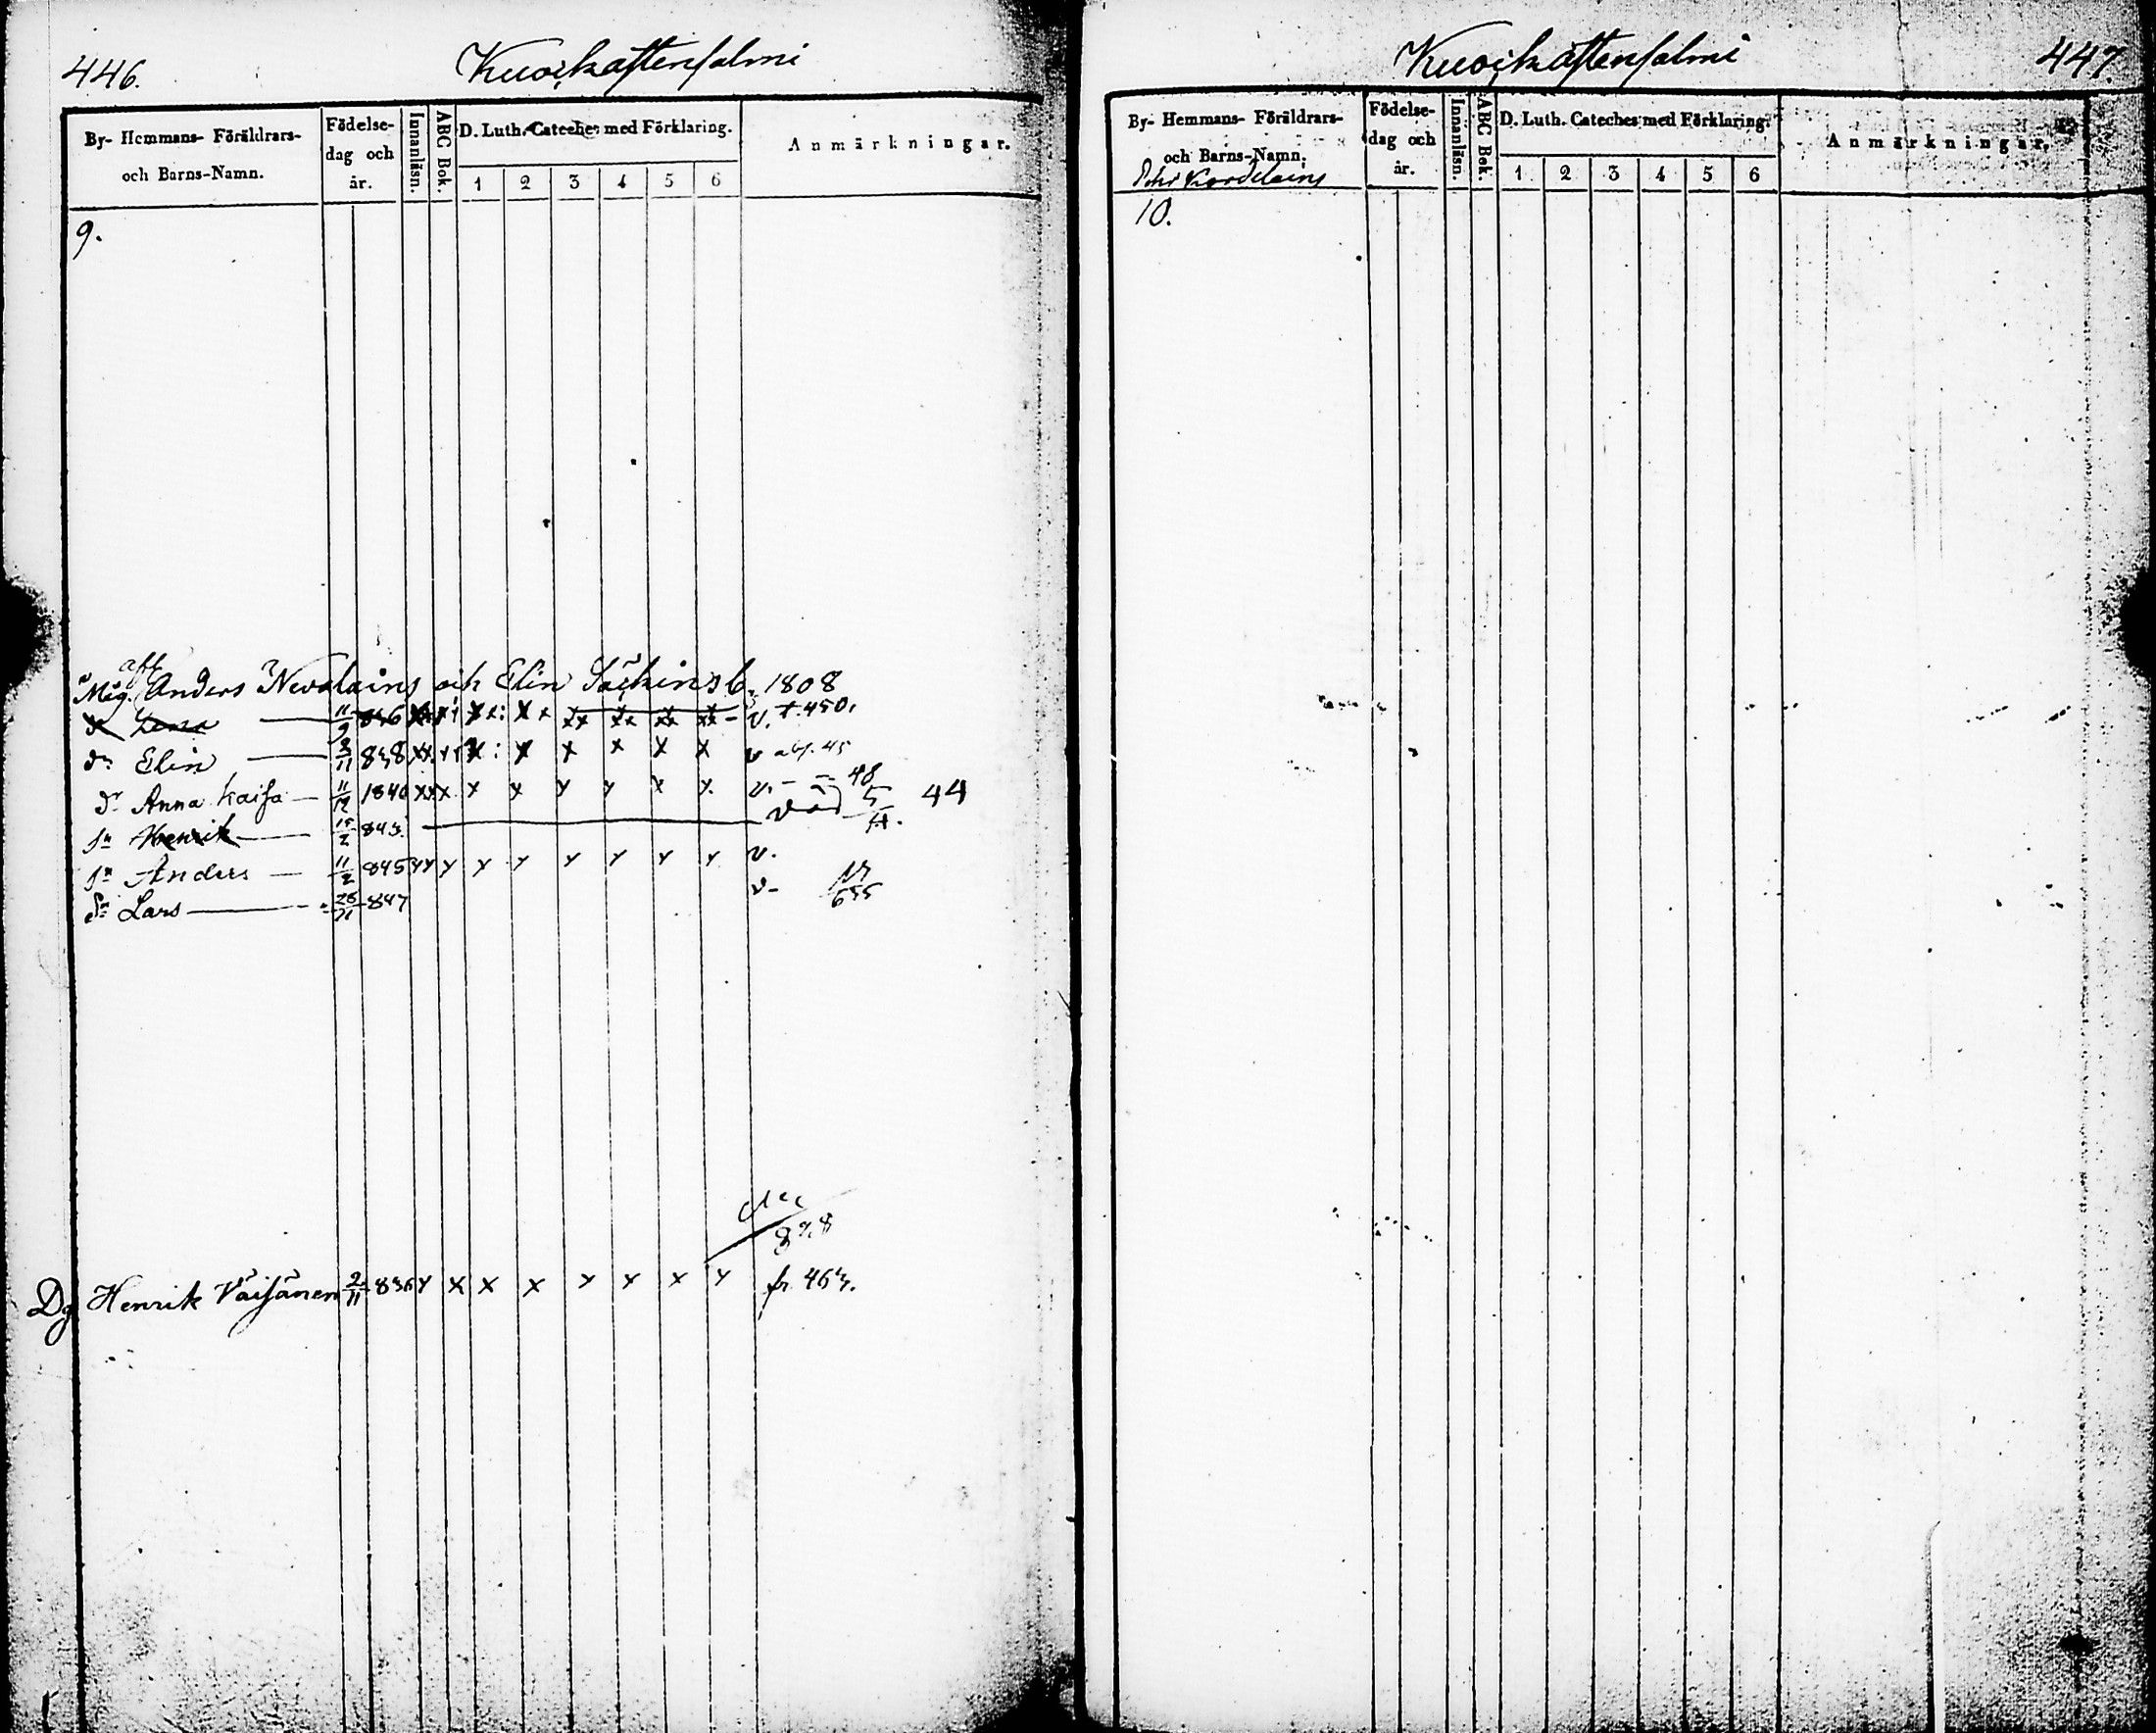 446. Kuoikaftenfalmi
By- Hemmans- Föräldrars- och Barns-Namn. Födelse-dag och år. Innanläsn. ABC Bok. D. Luth. Cateches med Förklaring. Anmärkningar.
1 2 3 4 5 6
9.
afl
Anders Nevalains och Elin 1808
dr Lena 11/9 836 v. t. 450.
dr Elin 838 x x x x x x v
dr Anna Kaisa 11/12 1840 xx x x x x x x x v. 48
sn Henrik 15/2 843. död 5/11. 44
sn Anders 11/2 845 x x x x x x x v.
sn Lars 847 v- 655
Dg Henrik Väisänen 2/11 836 x x x x x x x x fr. 463.
Kuoikaftenfalmi 447.
By- Hemmans- Föräldrars- och Barns-Namn. Födelse-dag och år. Innanläsn. ABC Bok. D. Luth. Cateches med Förklaring. Anmärkningar.
1 2 3 4 5 6
Pehr Kardelains
10.